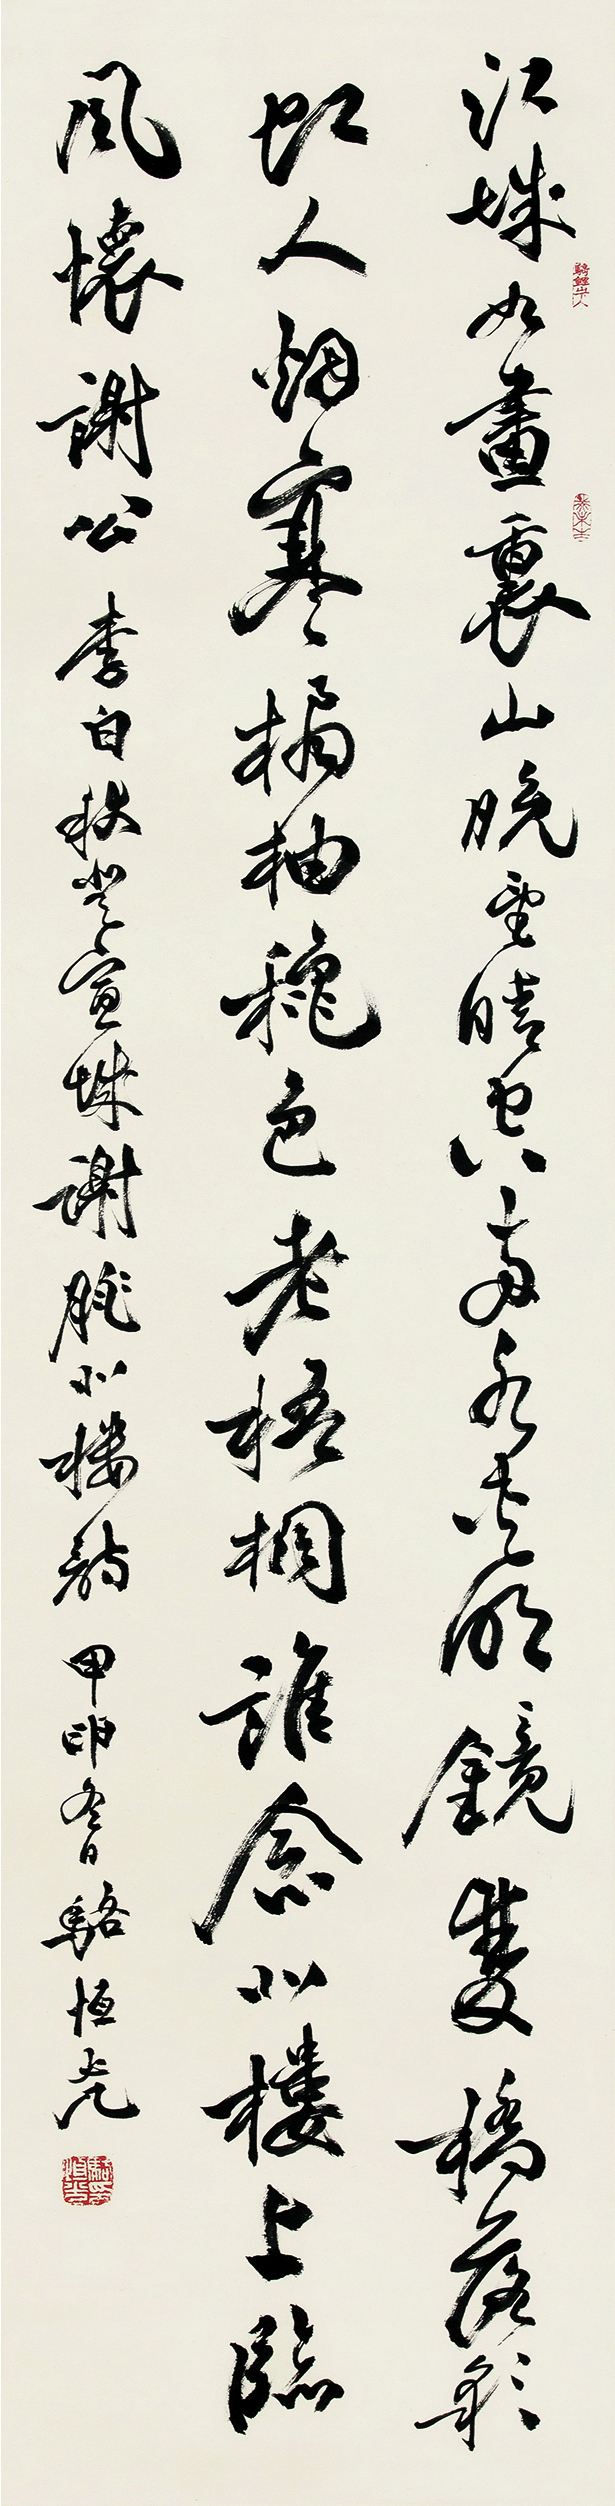 江城如畫裏山晚望晴空兩水夾明鏡雙橋落彩
虹人烟寒橘柚穐色老梧桐誰念北樓上臨
風懷謝公 李白秋登宣城謝朓北樓詩 甲申冬日 駱恒光